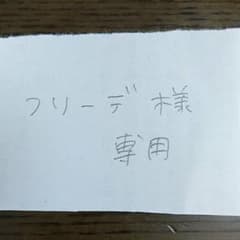 フリーデ様
専用